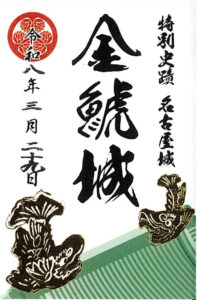 特別史蹟 名古屋城
金鯱城
令和八年三月二十九日